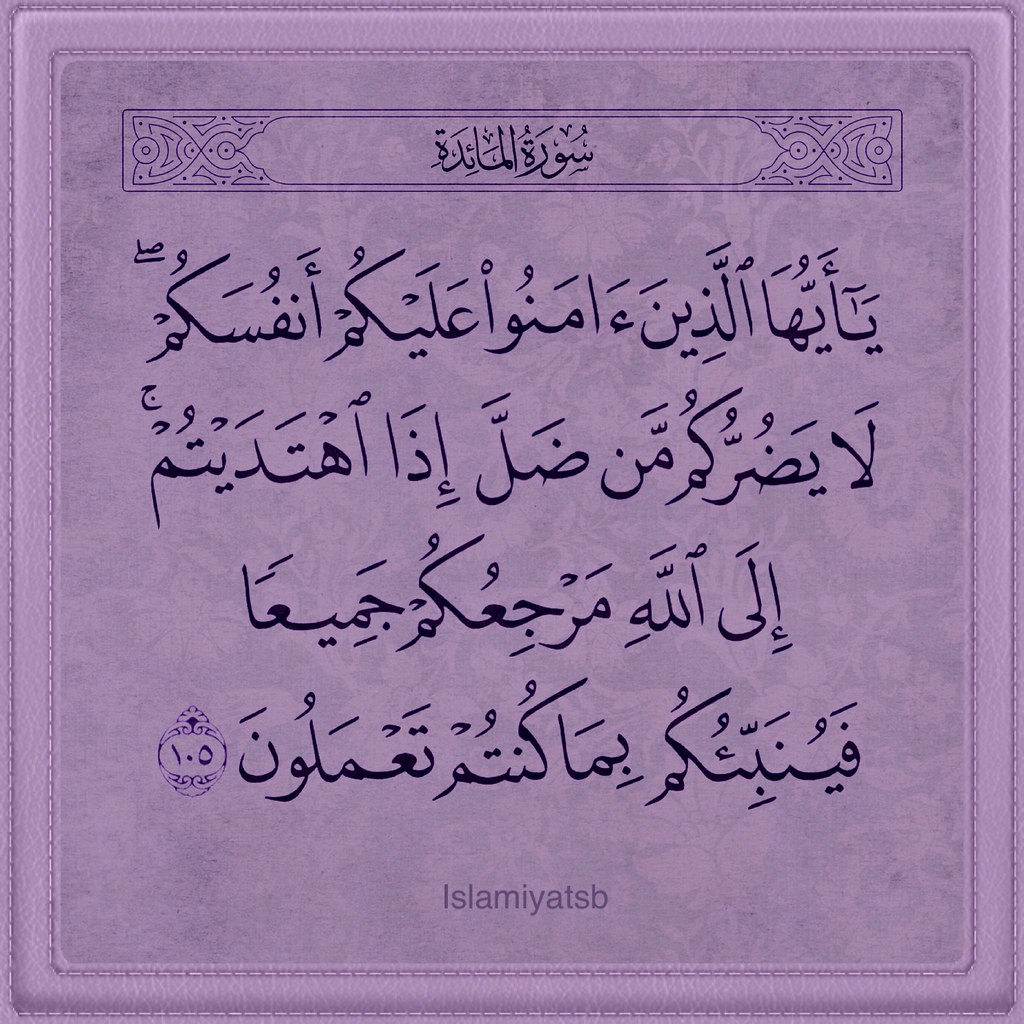 سُورَةُ المَائِدَةِ
يَـٰٓأَيُّهَا ٱلَّذِينَ ءَامَنُوا۟ عَلَيْكُمْ أَنفُسَكُمْ ۖ
لَا يَضُرُّكُم مَّن ضَلَّ إِذَا ٱهْتَدَيْتُمْ ۚ
إِلَى ٱللَّهِ مَرْجِعُكُمْ جَمِيعًا
فَيُنَبِّئُكُم بِمَا كُنتُمْ تَعْمَلُونَ ١٠٥
Islamiyatsb